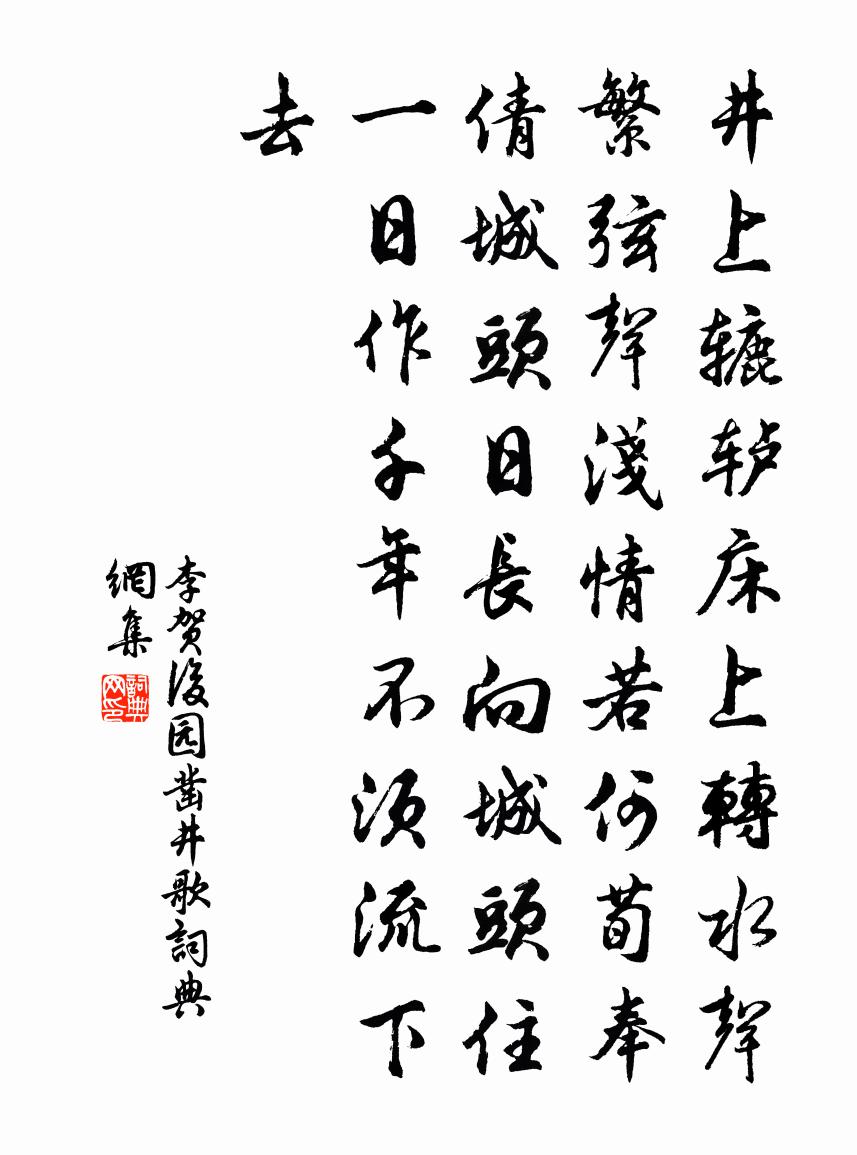 井上辘轳床上轉水聲
繁弦聲淺情若何荀奉
倩城頭日長向城頭住
一日作千年不須流下
去
李賀後园凿井歌詞典
網集
詞典
网印